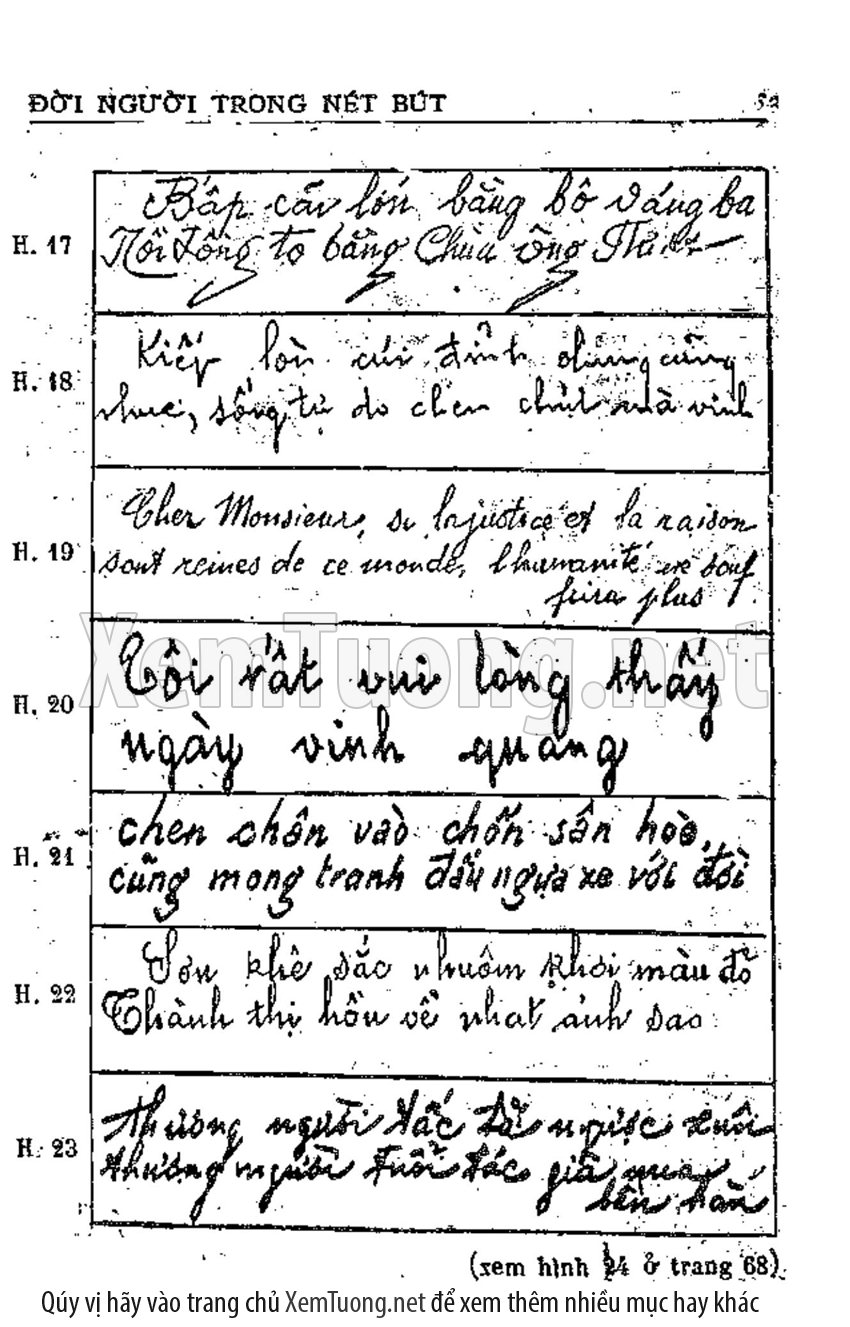 ĐỜI NGƯỜI TRONG NÉT BÚT
H. 17
Bắp cải lớn bằng bồ dáng ba
Nồi đồng to bằng Chùa ông
H. 18
Kiếp lòn cúi đỉnh chung cũng
nhục, sống tự do chen chúc mà vinh
H. 19
Cher Monsieur, si la justice et la raison
sont reines de ce monde, l'humanité ne souf
frira plus
XemTuong.net
H. 20
Tôi rất vui lòng thấy
ngày vinh quang
H. 21
chen chân vào chốn sân hòe,
cũng mong tranh đấu ngựa xe với đời
H. 22
Sơn khê sắc nhuôm khói màu đỏ
Thành thị hồn về nhạt ánh sao
H. 23
thương người tất tả ngược xuôi
thương người tuổi tác già nua
bần hàn
(xem hình 24 ở trang 68)
Qúy vị hãy vào trang chủ XemTuong.net để xem thêm nhiều mục hay khác